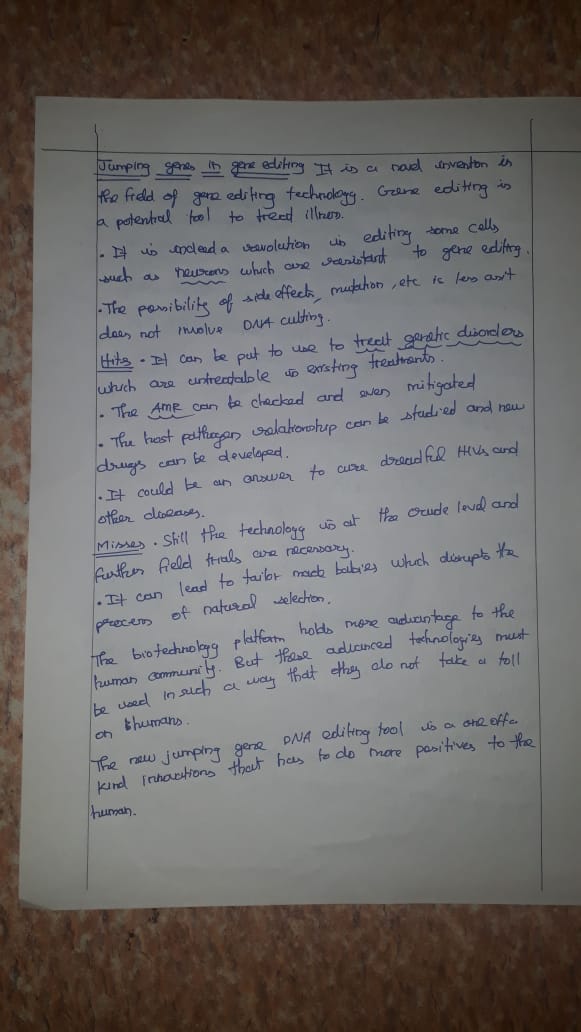 Jumping genes in gene editing It is a novel invention in
the field of gene editing technology. Gene editing is
a potential tool to treat illness.
• It is indeed a revolution in editing some cells
such as neurons which are resistant to gene editing.
• The possibility of side effects, mutation, etc is less as it
does not involve DNA cutting.
Hits • It can be put to use to treat genetic disorders
which are untreatable in existing treatments.
• The AMR can be checked and even mitigated
• The host pathogen relationship can be studied and new
drugs can be developed.
• It could be an answer to cure dreadful HIVs and
other diseases.
Misses • Still the technology is at the crude level and
further field trials are necessary.
• It can lead to tailor made babies which disrupts the
process of natural selection.
The biotechnology platform holds more advantage to the
human community. But these advanced technologies must
be used in such a way that they do not take a toll
on humans.
The new jumping gene DNA editing tool is a one off a
kind that has to do more positives to the
human.